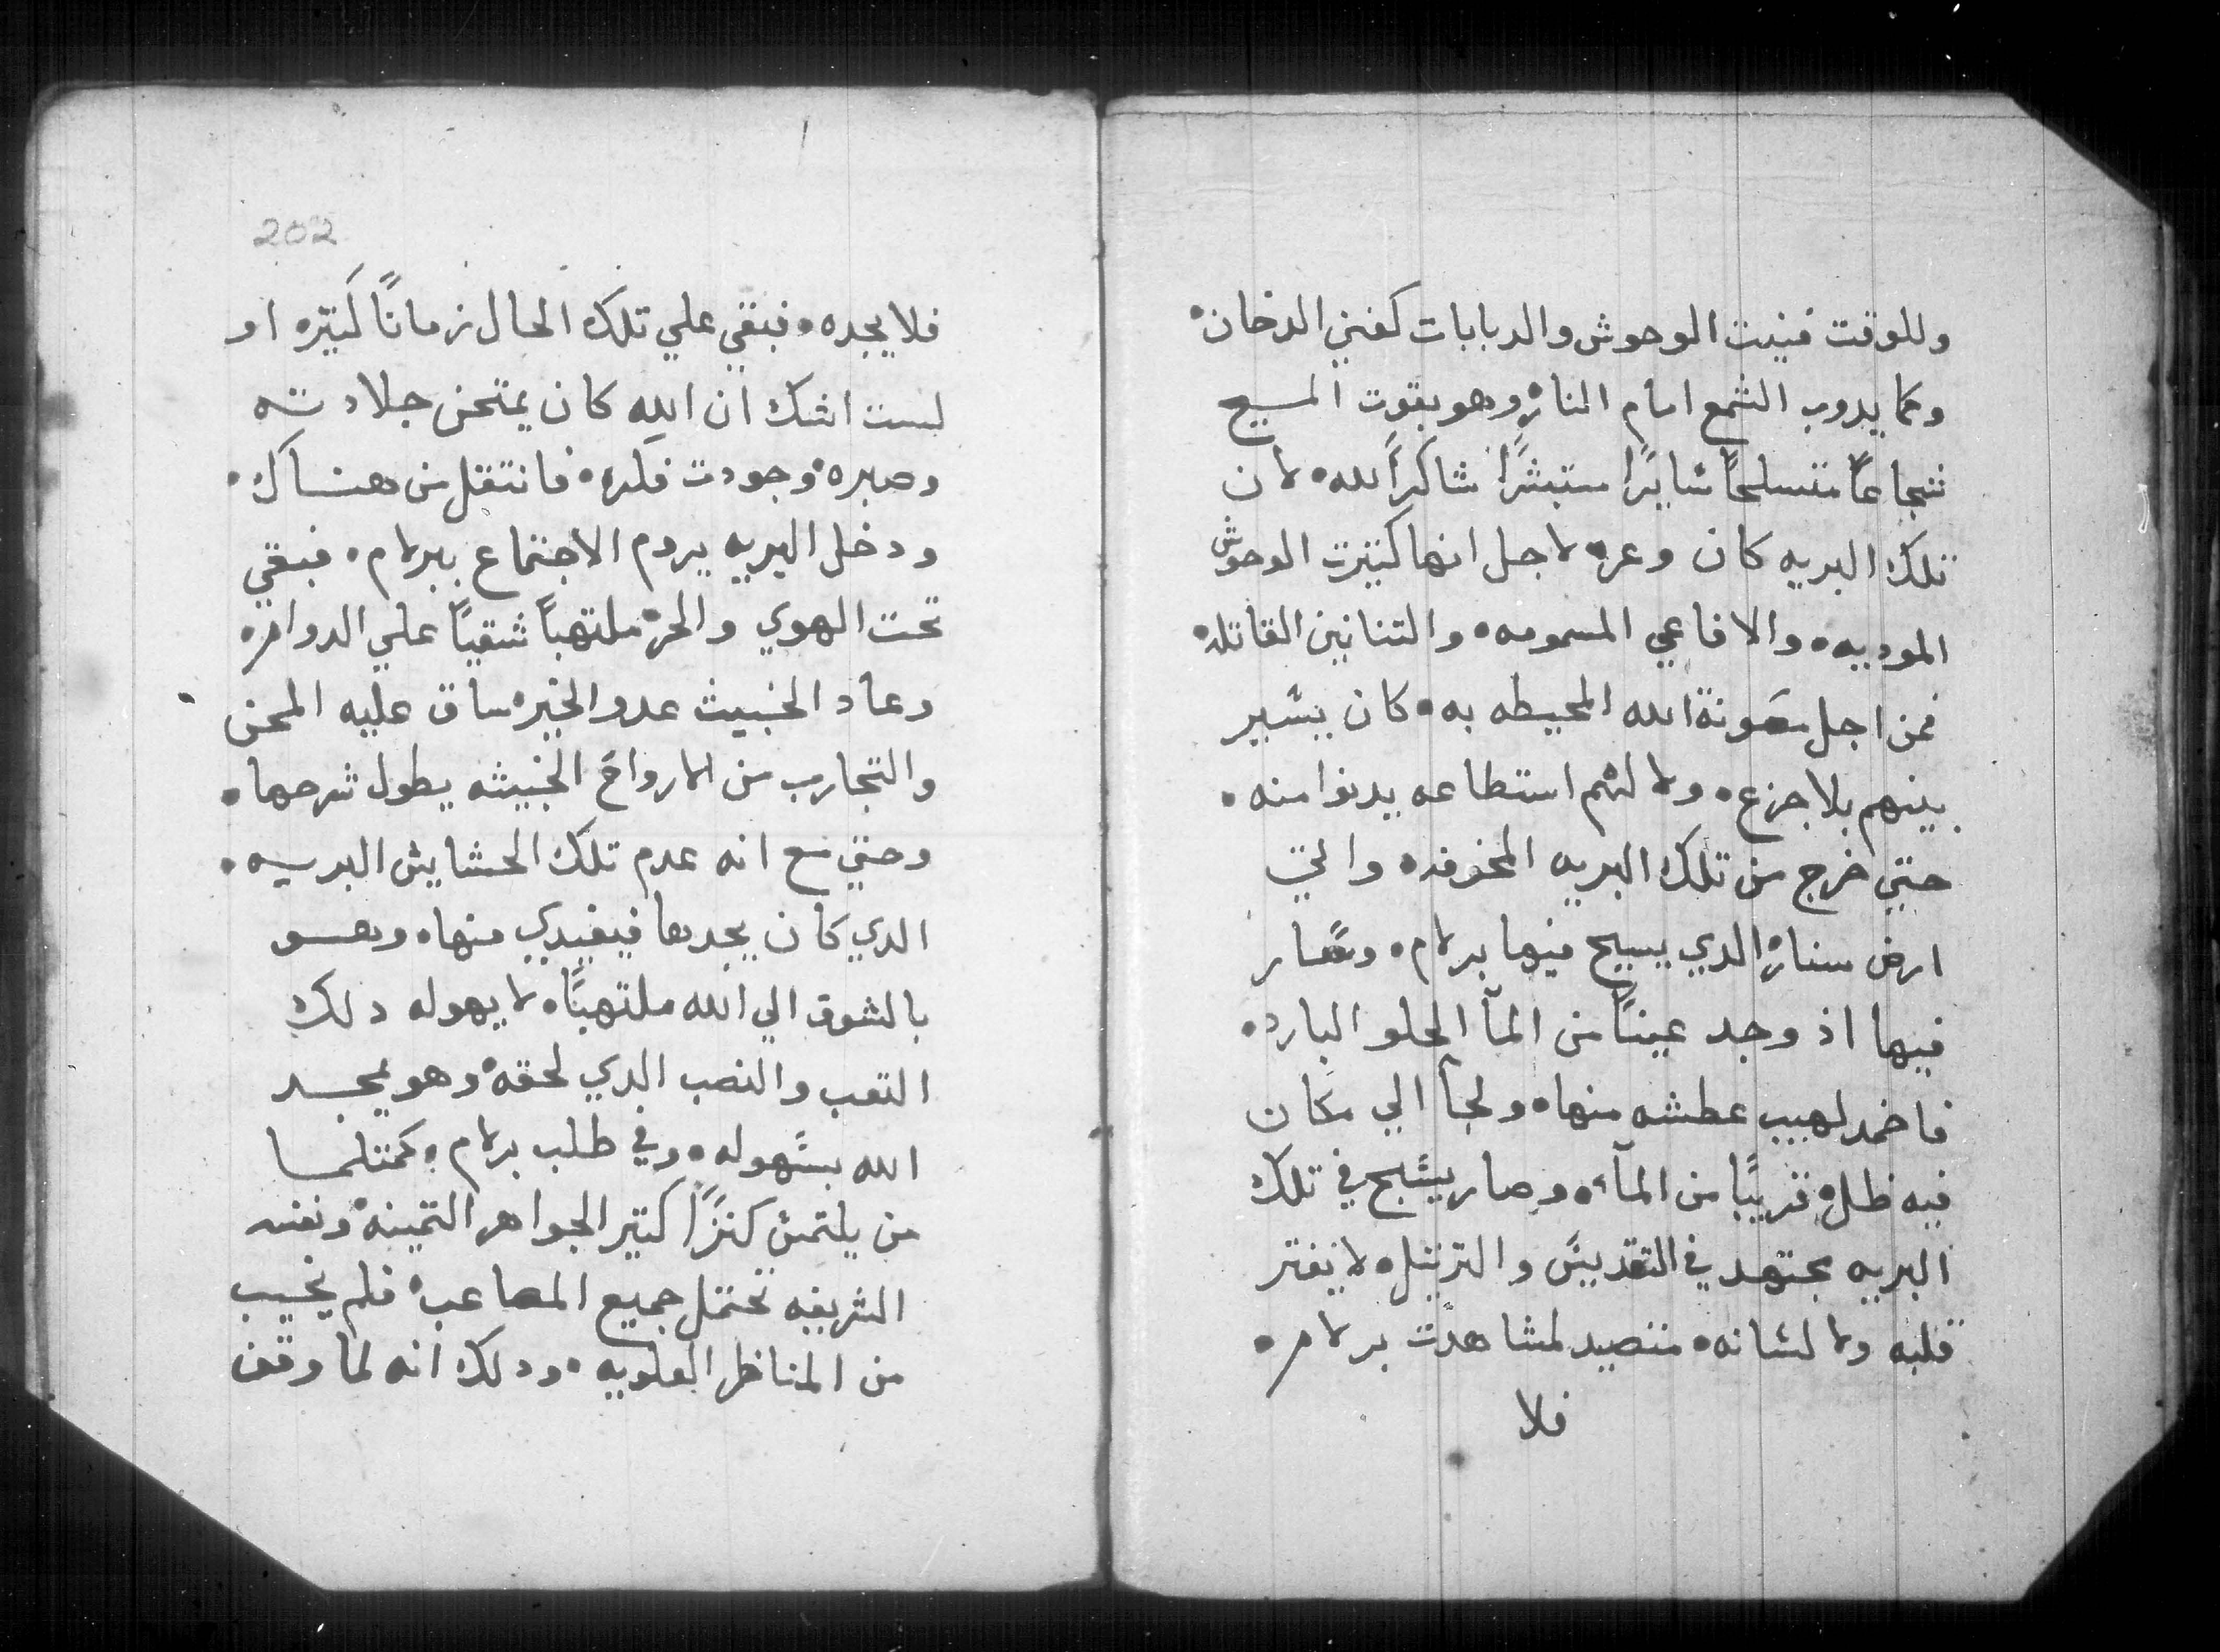 وللوقت فنيت الوحوش والدبابات كفني الدخان
وكما يدوب الشمع امام النار وهو بقوت المسيح
شجاعًا متسلحًا سايرًا مستبشرًا شاكرًا لله لان
تلك البريه كان وعره لاجل انها كتيرت الوحوش
الموديه والافاعي المسمومه والتنانين القاتله
فمن اجل معونة الله المحيطه به كان يسير
بينهم بلا جزع ولا لهم استطاعه يدنوا منه
حتي خرج من تلك البريه المخوفه والي
ارض سنار الدي يسيح فيها برلام وسار
فيها اذ وجد عينًا من المآ الحلو البارد
فاخمد لهيب عطشه منها ولجآ الي مكان
فيه ظل قريبًا من المآء وصار يسبح في تلك
البريه مجتهد في التقديس والترتيل لا يفتر
قلبه ولا لسانه متصيد لمشاهدت برلام
فلا
202
فلا يجده فبقي علي تلك الحال زمانًا كتيره او
لست اشك ان الله كان يمتحن جلادته
وصبره وجودت فكره فانتقل من هناك
ودخل البريه يروم الاجتماع ببرلام فبقي
تحت الهوي والحر ملتهبًا شقيًا علي الدوام
وعاد الخبيث عدو الخير ساق عليه المحن
والتجارب من الارواح الخبيثه يطول شرحها
وحتي مع انه عدم تلك الحشايش البريه
الدي كان يجدها فيغتدي منها وهو
بالشوق الي الله ملتهبًا لا يهوله دلك
التعب والنصب الدي لحقه وهو يمجد
الله بسهوله وفي طلب برلام كمتلما
من يلتمس كنزًا كتير الجواهر التمينه ونفسه
الشريفه تحتمل جميع المصاعب فلم يخيب
من المناظر العلويه ودلك انه لما وقف